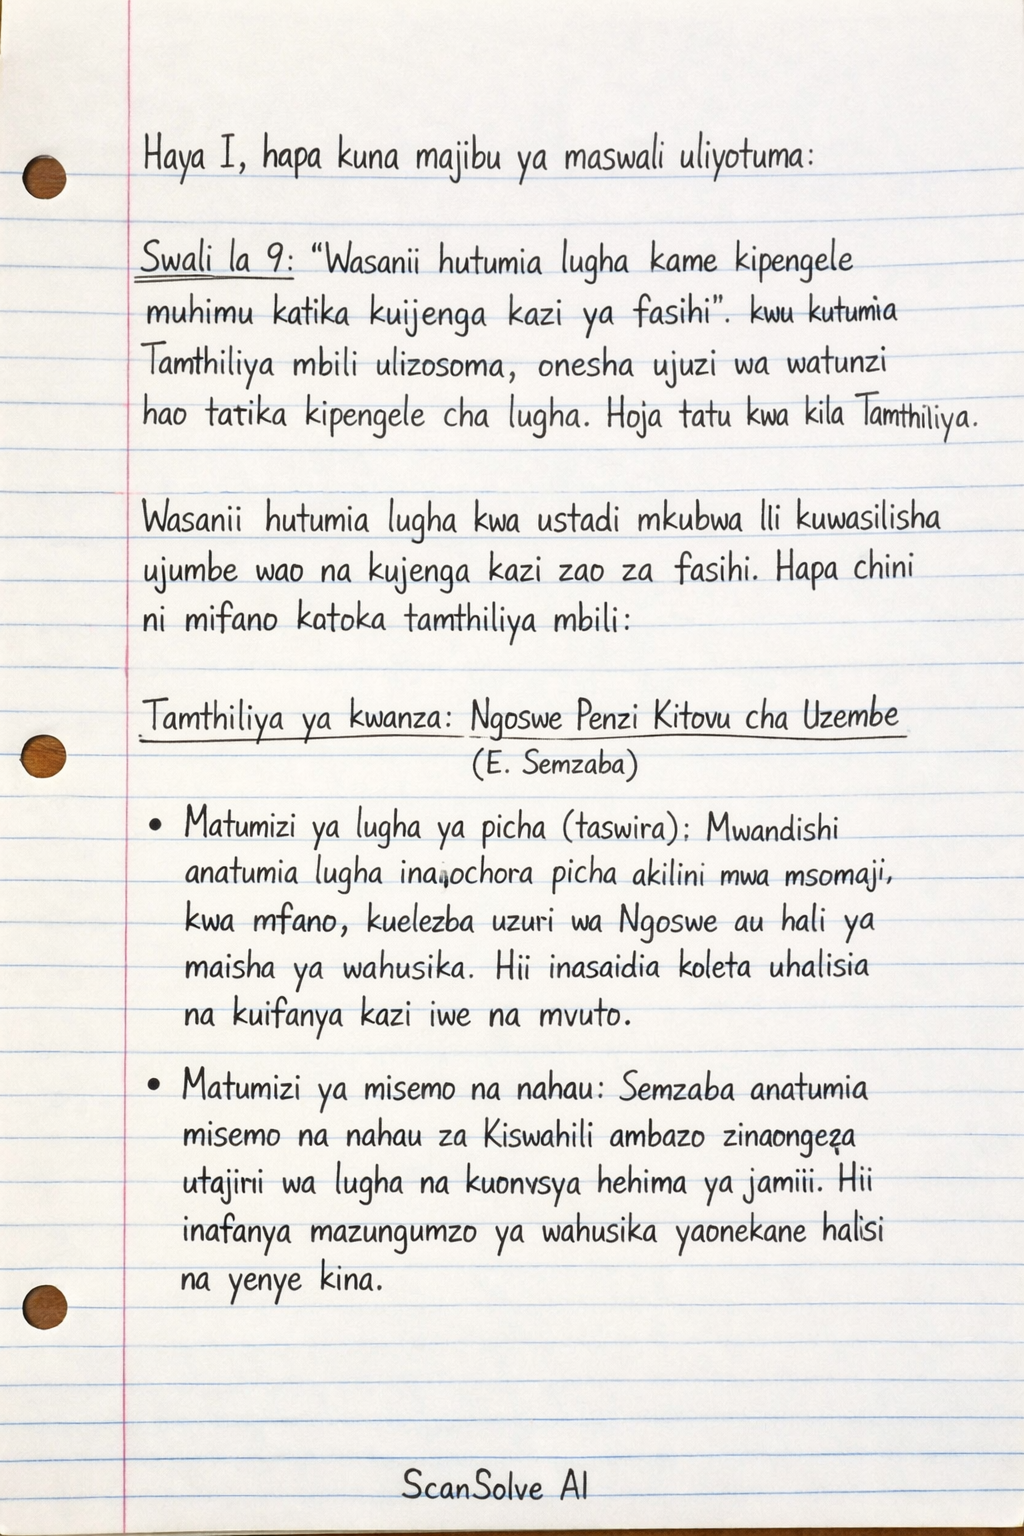 Haya I, hapa kuna majibu ya maswali uliyotuma:
Swali la 9: “Wasanii hutumia lugha kame kipengele
muhimu katika kuijenga kazi ya fasihi”. kwu kutumia
Tamthiliya mbili ulizosoma, onesha ujuzi wa watunzi
hao tatika kipengele cha lugha. Hoja tatu kwa kila Tamthiliya.
Wasanii hutumia lugha kwa ustadi mkubwa lli kuwasilisha
ujumbe wao na kujenga kazi zao za fasihi. Hapa chini
ni mifano katoka tamthiliya mbili:
Tamthiliya ya kwanza: Ngoswe Penzi Kitovu cha Uzembe
(E. Semzaba)
• Matumizi ya lugha ya picha (taswira); Mwandishi
anatumia lugha picha akilini mwa msomaji,
kwa mfano, kuelezba uzuri wa Ngoswe au hali ya
maisha ya wahusika. Hii inasaidia koleta uhalisia
na kuifanya kazi iwe na mvuto.
• Matumizi ya misemo na nahau: Semzaba anatumia
misemo na nahau za Kiswahili ambazo zinaongeza
utajirii wa lugha na kuonvsya hehima ya jamiii. Hii
inafanya mazungumzo ya wahusika yaonekane halisi
na yenye kina.
ScanSolve AI